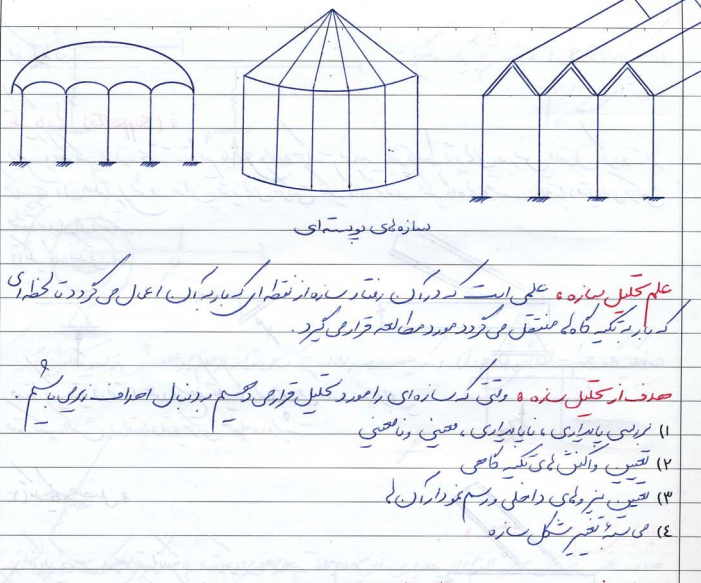 سازه‌های پوسته‌ای
علم تحلیل سازه: علمی است که در آن رفتار سازه از نقطه ای که بار به آن اعمال می گردد تا لحظه ای
که بار به تکیه گاه ها منتقل می گردد مورد مطالعه قرار می گیرد.
هدف از تحلیل سازه: وقتی که سازه ای را مورد تحلیل قرار می دهیم به دنبال اهداف زیر می باشیم.
۱) بررسی پایداری، ناپایداری، معینی و نامعینی
۲) تعیین واکنش های تکیه گاهی
۳) تعیین نیروهای داخلی و رسم نمودار آن ها
۴) محاسبهٔ تغییر شکل سازه